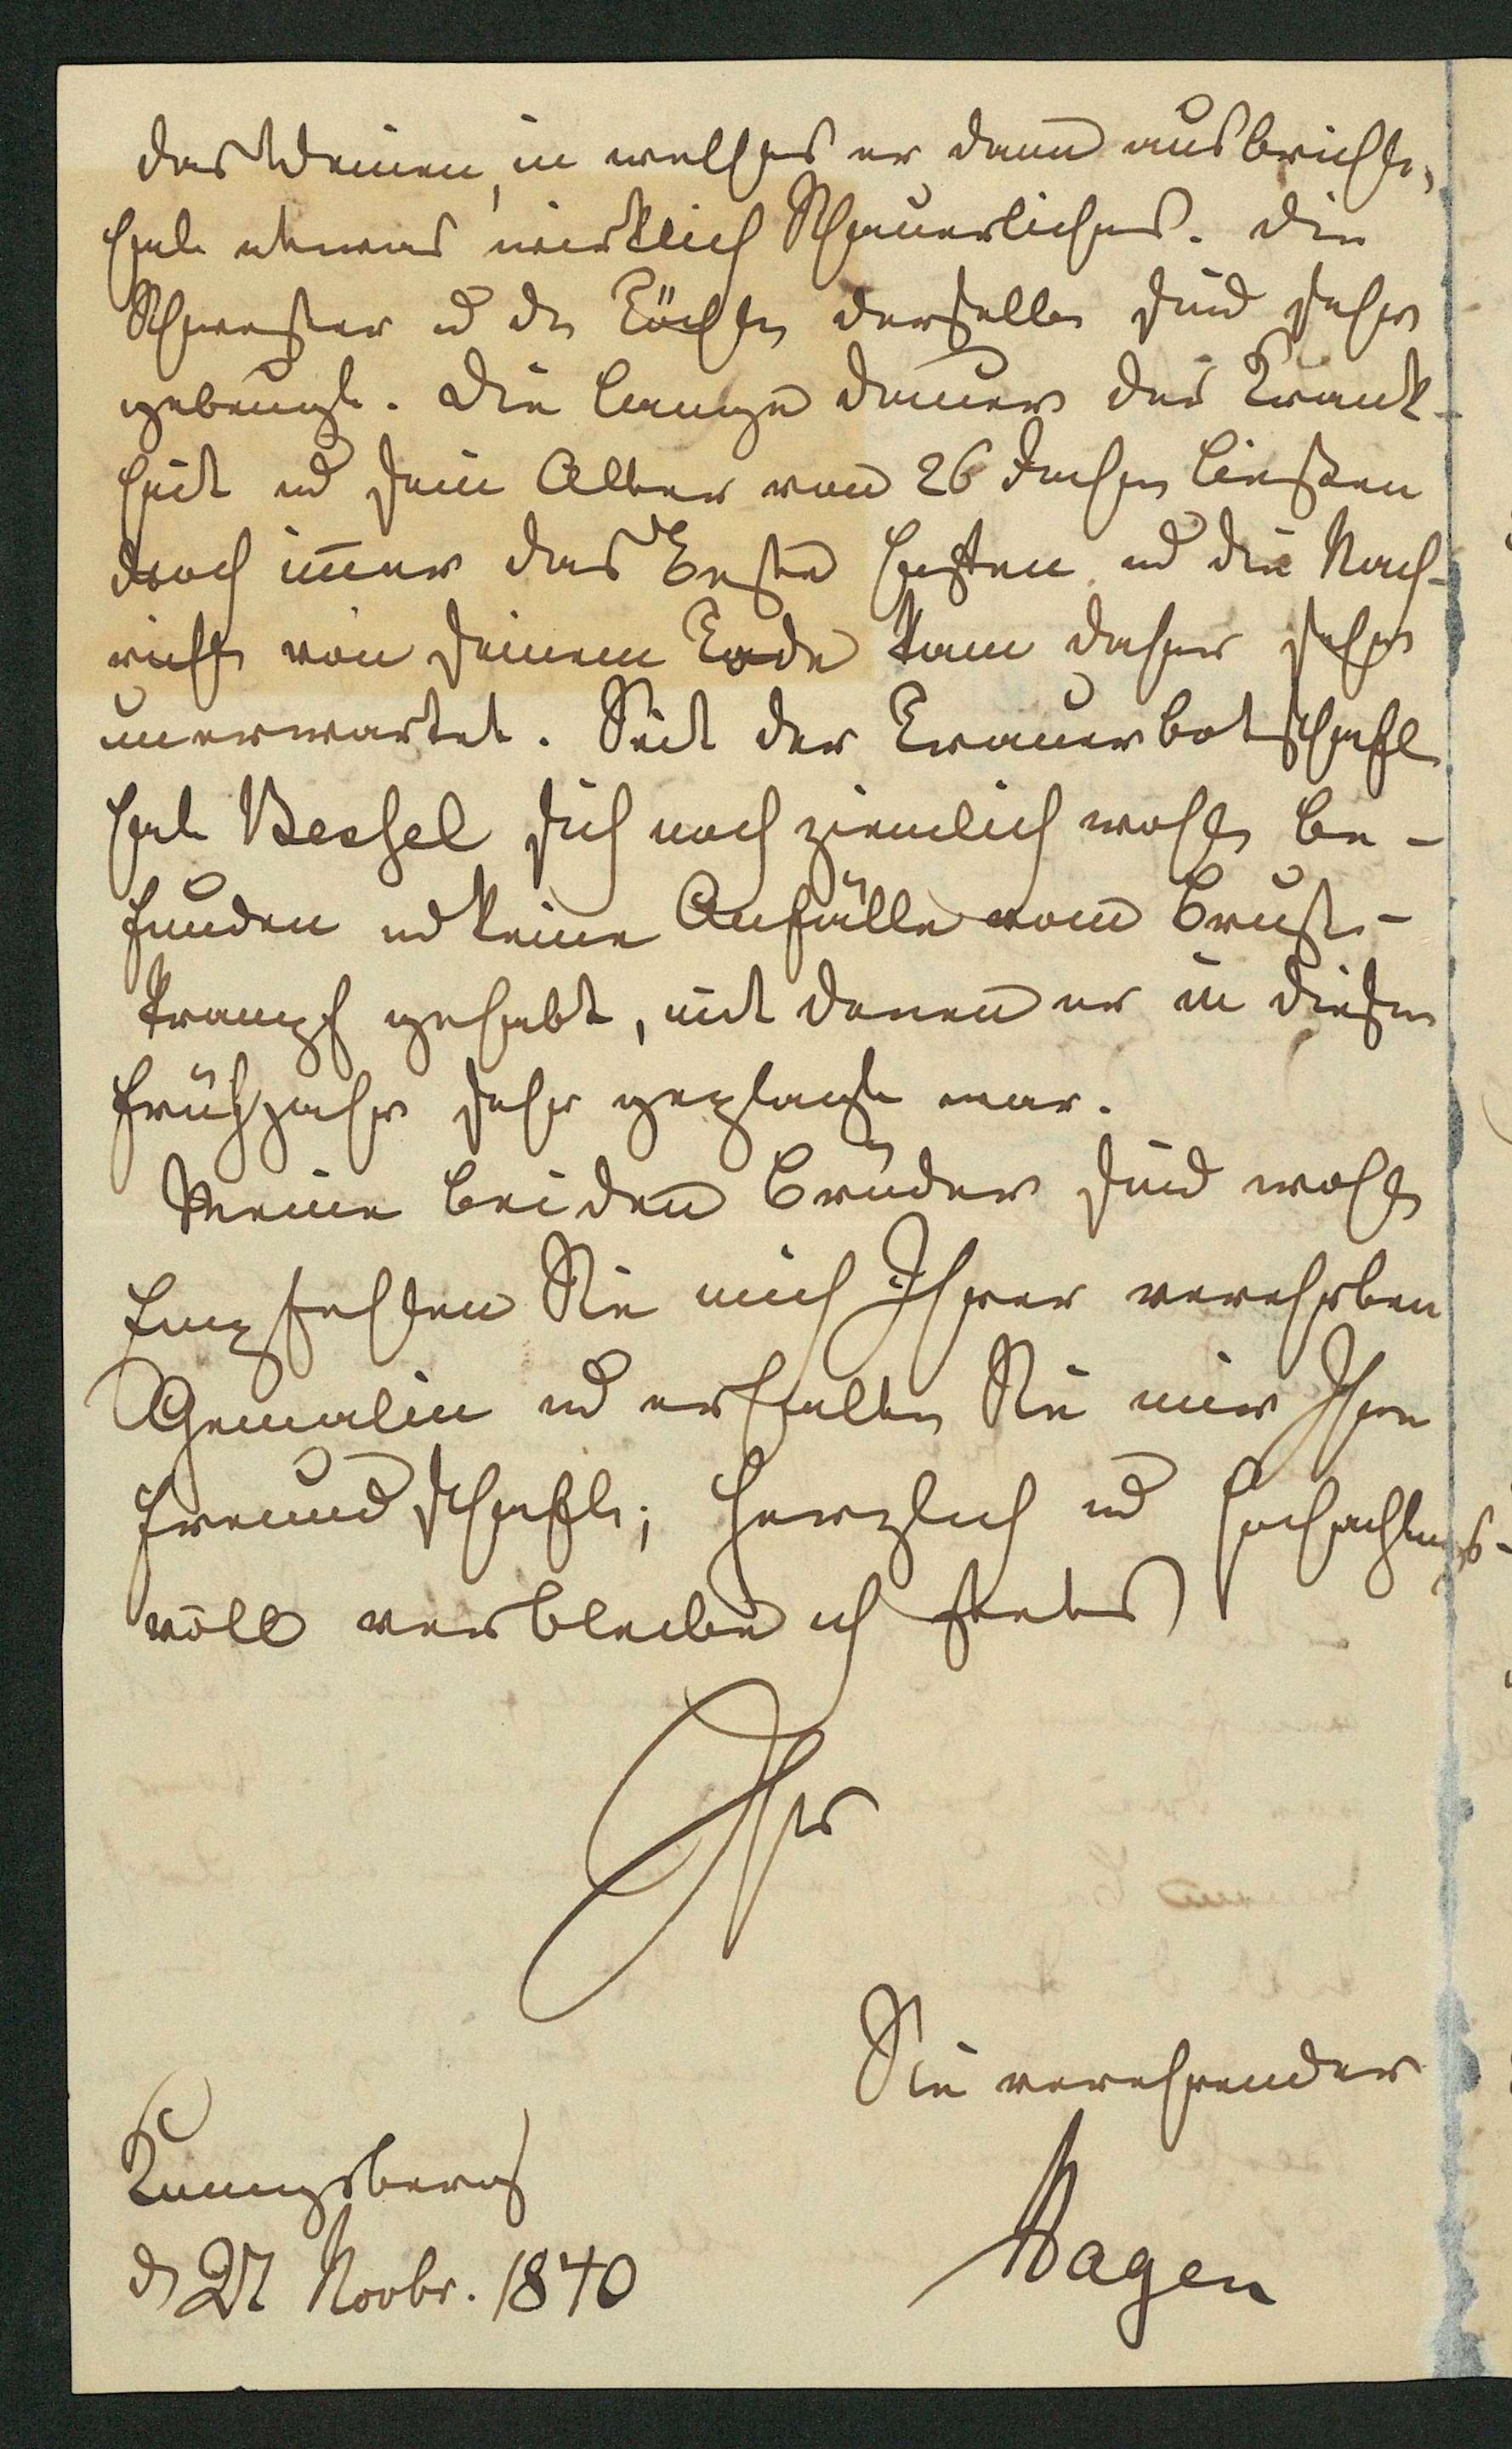 das Weinen, in welches er dann ausbricht,
hat etwas wirklich Schauerliches. Die
Schwester ud die Töchter derselben sind sehr
gebeugt. Die lange Dauer der Krank-
heit ud sein Alter von 26 Jahren ließen
doch immer das Beste hoffen ud die Nach-
richt von seinem Tode kam daher sehr
unerwartet. Seit der Trauerbotschaft
hat Bessel sich noch ziemlich wohl be-
funden ud keine Anfälle vom Brust-
krampf gehabt, mit denen er in diesem
Frühjahr sehr geplagt war.
Meine beiden Brüder sind wohl
Empfehlen Sie mich Ihrer verehrten
Gemalin ud erhalten Sie mir Ihre
Freundschaft; herzlich ud hochachtungs-
voll verbleibe ich stets
Ihr
Sie verehrender
Hagen
Kœnigsberg
d 27 Novbr. 1840